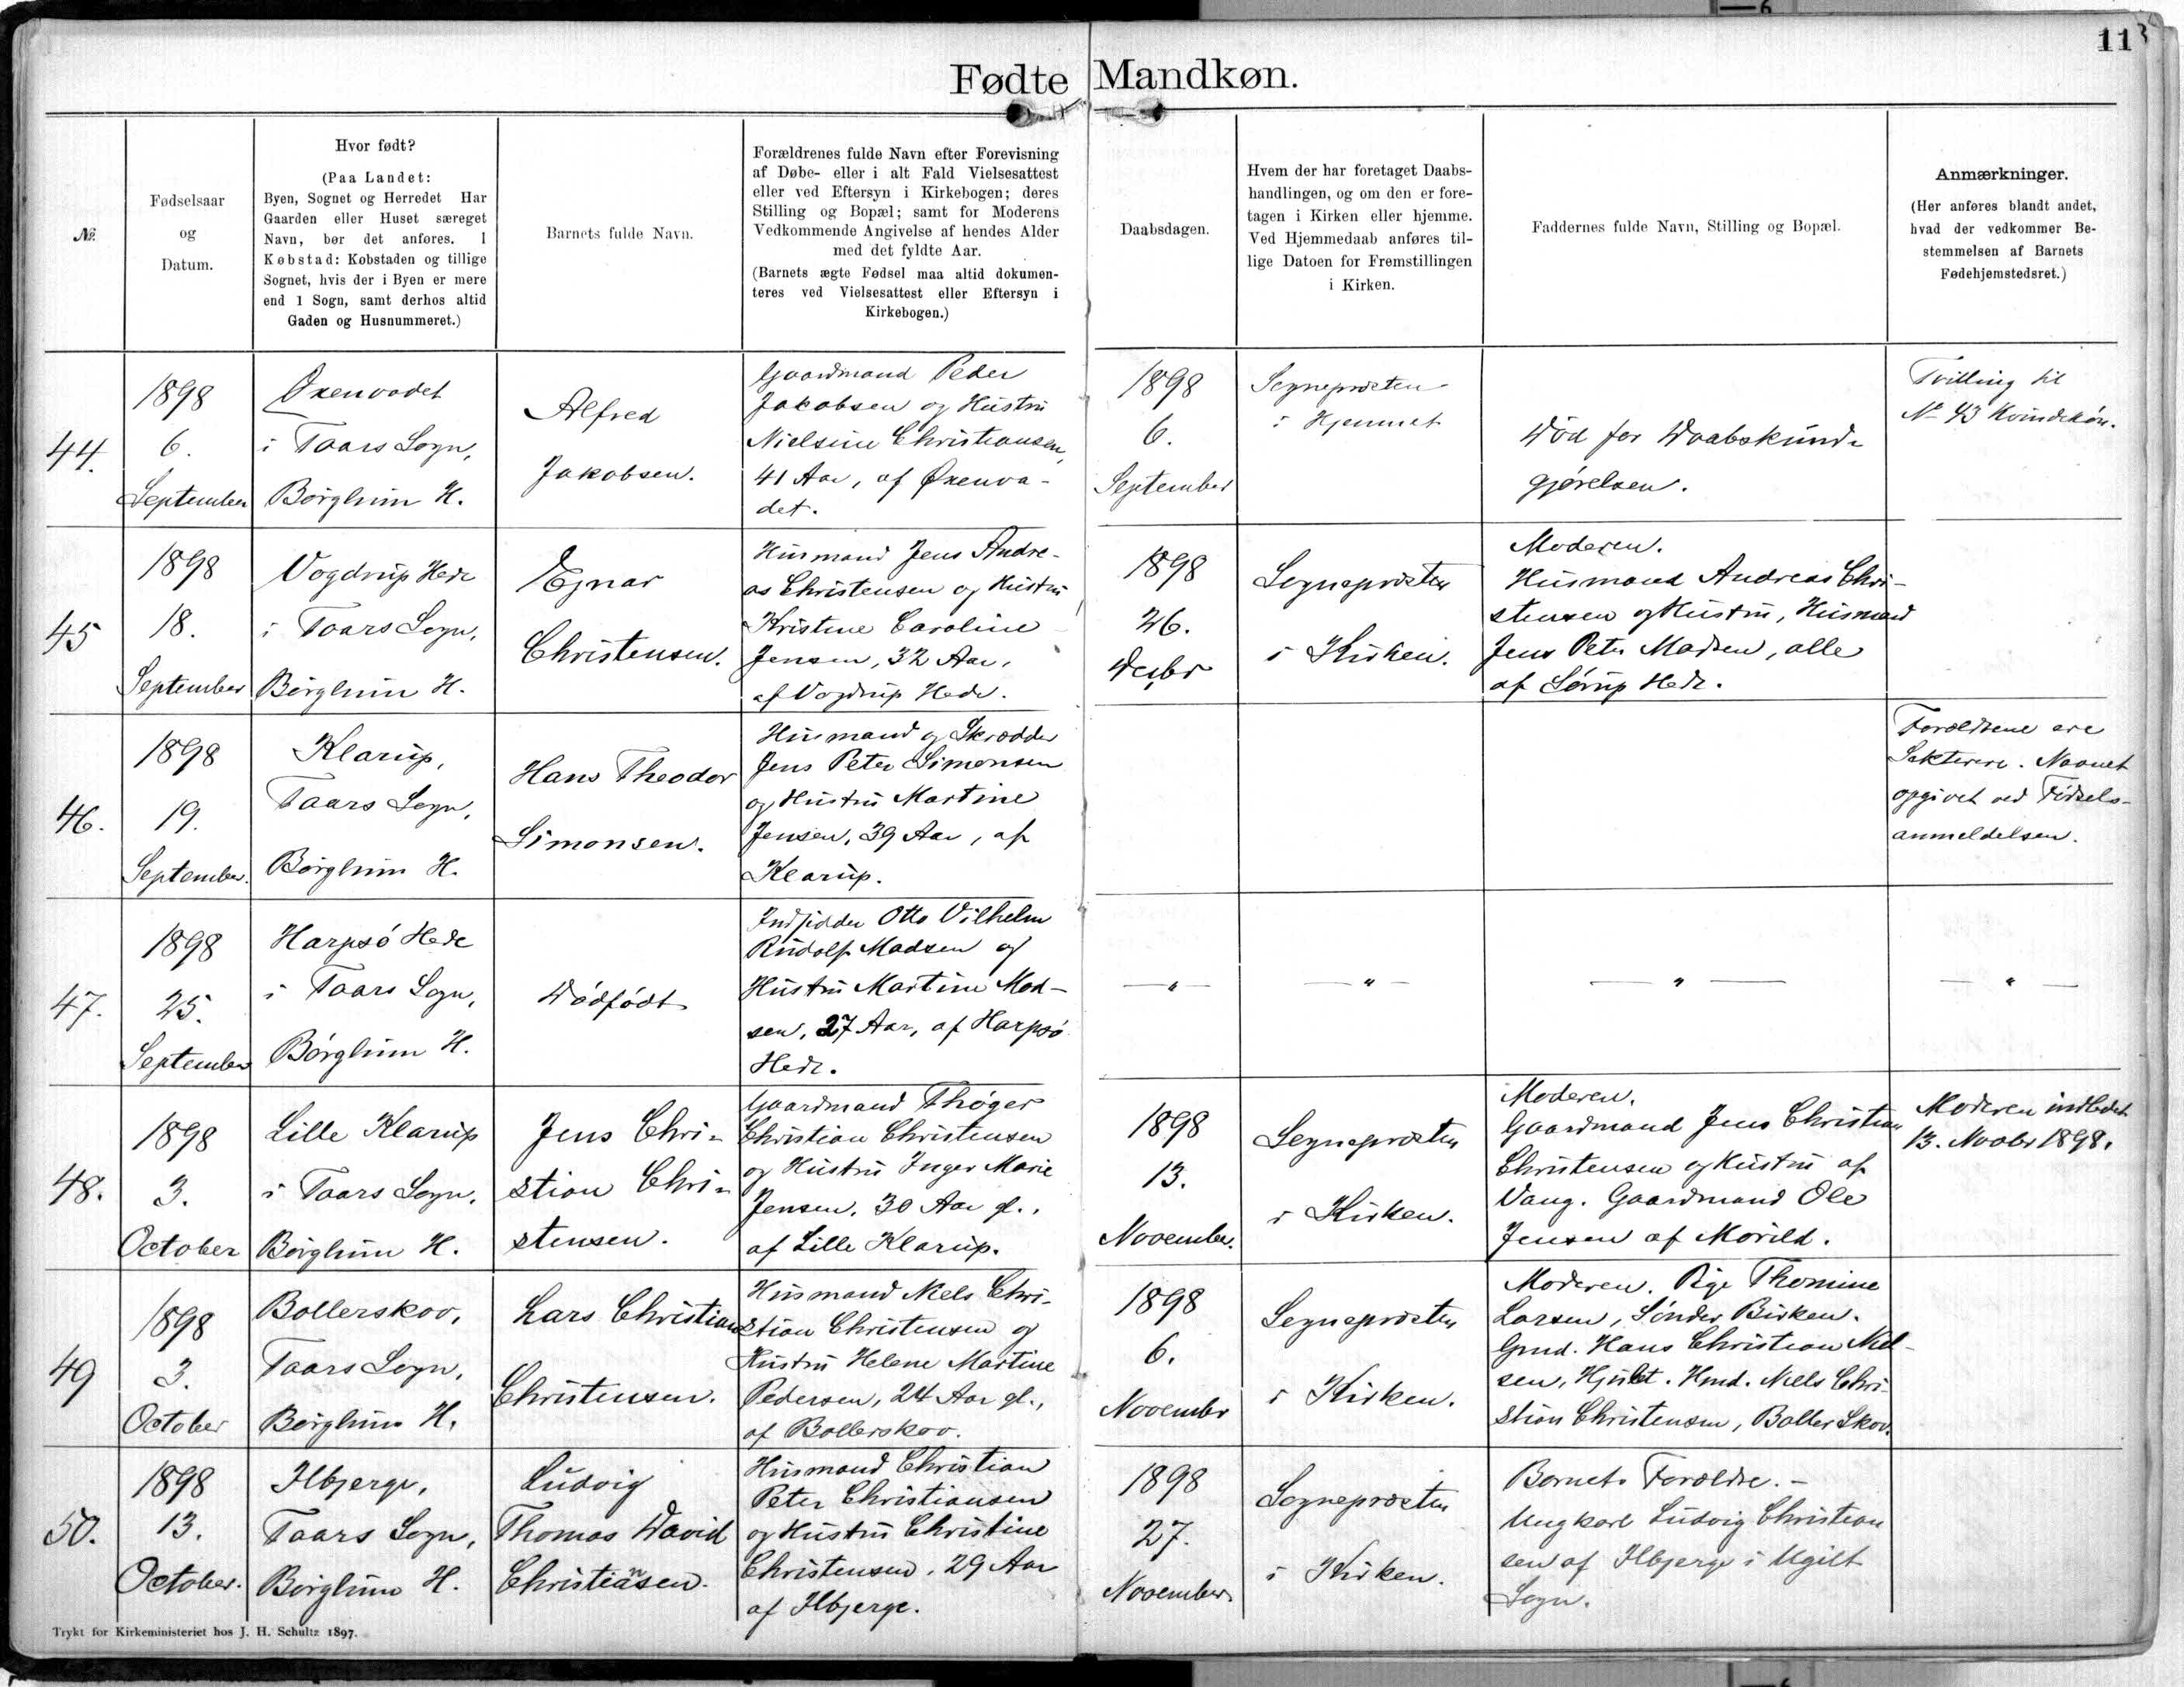 11
Fødte Mandkøn.
№.
Fødselsaar
og
Datum.
Hvor født?
(Paa Landet:
Byen, Sognet og Herredet Har
Gaarden eller Huset særeget
Navn, bør det anføres. I
Købstad: Købstaden og tillige
Sognet, hvis der i Byen er mere
end 1 Sogn, samt derhos altid
Gaden og Husnummeret.)
Barnets fulde Navn.
Forældrenes fulde Navn efter Forevisning
af Døbe- eller i alt Fald Vielsesattest
eller ved Eftersyn i Kirkebogen; deres
Stilling og Bopæl; samt for Moderens
Vedkommende Angivelse af hendes Alder
med det fyldte Aar.
(Barnets ægte Fødsel maa altid dokumen-
teres ved Vielsesattest eller Eftersyn i
Kirkebogen.)
Daabsdagen.
Hvem der har foretaget Daabs-
handlingen, og om den er fore-
tagen i Kirken eller hjemme.
Ved Hjemmedaab anføres til-
lige Datoen for Fremstillingen
i Kirken.
Faddernes fulde Navn, Stilling og Bopæl.
Anmærkninger.
(Her anføres blandt andet,
hvad der vedkommer Be-
stemmelsen af Barnets
Fødehjemstedsret.)
44.
1898
6.
September
Oxenvadet
i Taars Sogn,
Børglum H.
Alfred
Jakobsen.
Gaardmand Peder
Jakobsen og Hustru
Nielsine Christiansen,
41 Aar, af Øxenva-
det.
1898
6.
September
Sognepræsten
i Hjemmet
Død før Daabskund-
gjørelsen.
Tvilling til
N° 43 Kvindekøn.
45
1898
18.
September
Vogdrup Hede
i Taars Sogn,
Børglum H.
Ejnar
Christensen.
Husmand Jens Andre-
as Christensen og Hustru
Kristine Caroline
Jensen, 32 Aar,
af Vogdrup Hede.
1898
26.
Decbr
Sognepræsten
i Kirken.
Moderen.
Husmand Andreas Chri-
stensen og Hustru, Husmand
Jens Peter Madsen, alle
af Sørup Hede.
46.
1898
19.
September.
Klarup,
Taars Sogn,
Børglum H.
Hans Theodor
Simonsen.
Husmand og Skrædder
Jens Peter Simonsen
og Hustru Martine
Jensen, 39 Aar, af
Klarup.
Forældrene ere
Sekterere. Navnet
opgivet ved Fødsels-
anmeldelsen.
47.
1898
25.
September
Harpsø Hede
i Taars Sogn,
Børglum H.
Dødfødt
Indsidder Otto Vilhelm
Rudolf Madsen og
Hustru Martine Mad-
sen, 27 Aar, af Harpsø
Hede.
— " —
— " —
— " —
— " —
48.
1898
3.
October
Lille Klarup
i Taars Sogn,
Børglum H.
Jens Chri-
stian Chri-
stensen.
Gaardmand Thøger
Christian Christensen
og Hustru Inger Marie
Jensen, 30 Aar gl.,
af Lille Klarup.
1898
13.
November.
Sognepræsten
i Kirken.
Moderen.
Gaardmand Jens Christian
Christensen og Hustru af
Vang. Gaardmand Ole
Jensen af Morild.
Moderen indledet
13. Novbr 1898.
49
1898
3.
October
Bollerskov,
Taars Sogn,
Børglum H.
Lars Christian
Christensen.
Husmand Niels Chri-
stian Christensen og
Hustru Helene Martine
Pedersen, 24 Aar gl.,
af Bollerskov.
1898
6.
November
Sognepræsten
i Kirken.
Moderen. Pige Thomine
Larsen, Sønder Birken.
Gmd. Hans Christian Niel-
sen, Hjulet. Hmd. Niels Chri-
stian Christensen, Boller Skov.
50.
1898
13.
October.
Ilbjerge,
Taars Sogn,
Børglum H.
Ludvig
Thomas David
Christiansen.
Husmand Christian
Peter Christiansen
og Hustru Christine
Christensen, 29 Aar
af Ilbjerge.
1898
27.
November
Sognepræsten
i Kirken.
Barnets Forældre. -
Ungkarl Ludvig Christian
sen af Ilbjerge i Ugilt
Sogn.
Trykt for Kirkeministeriet hos J. H. Schultz 1897.